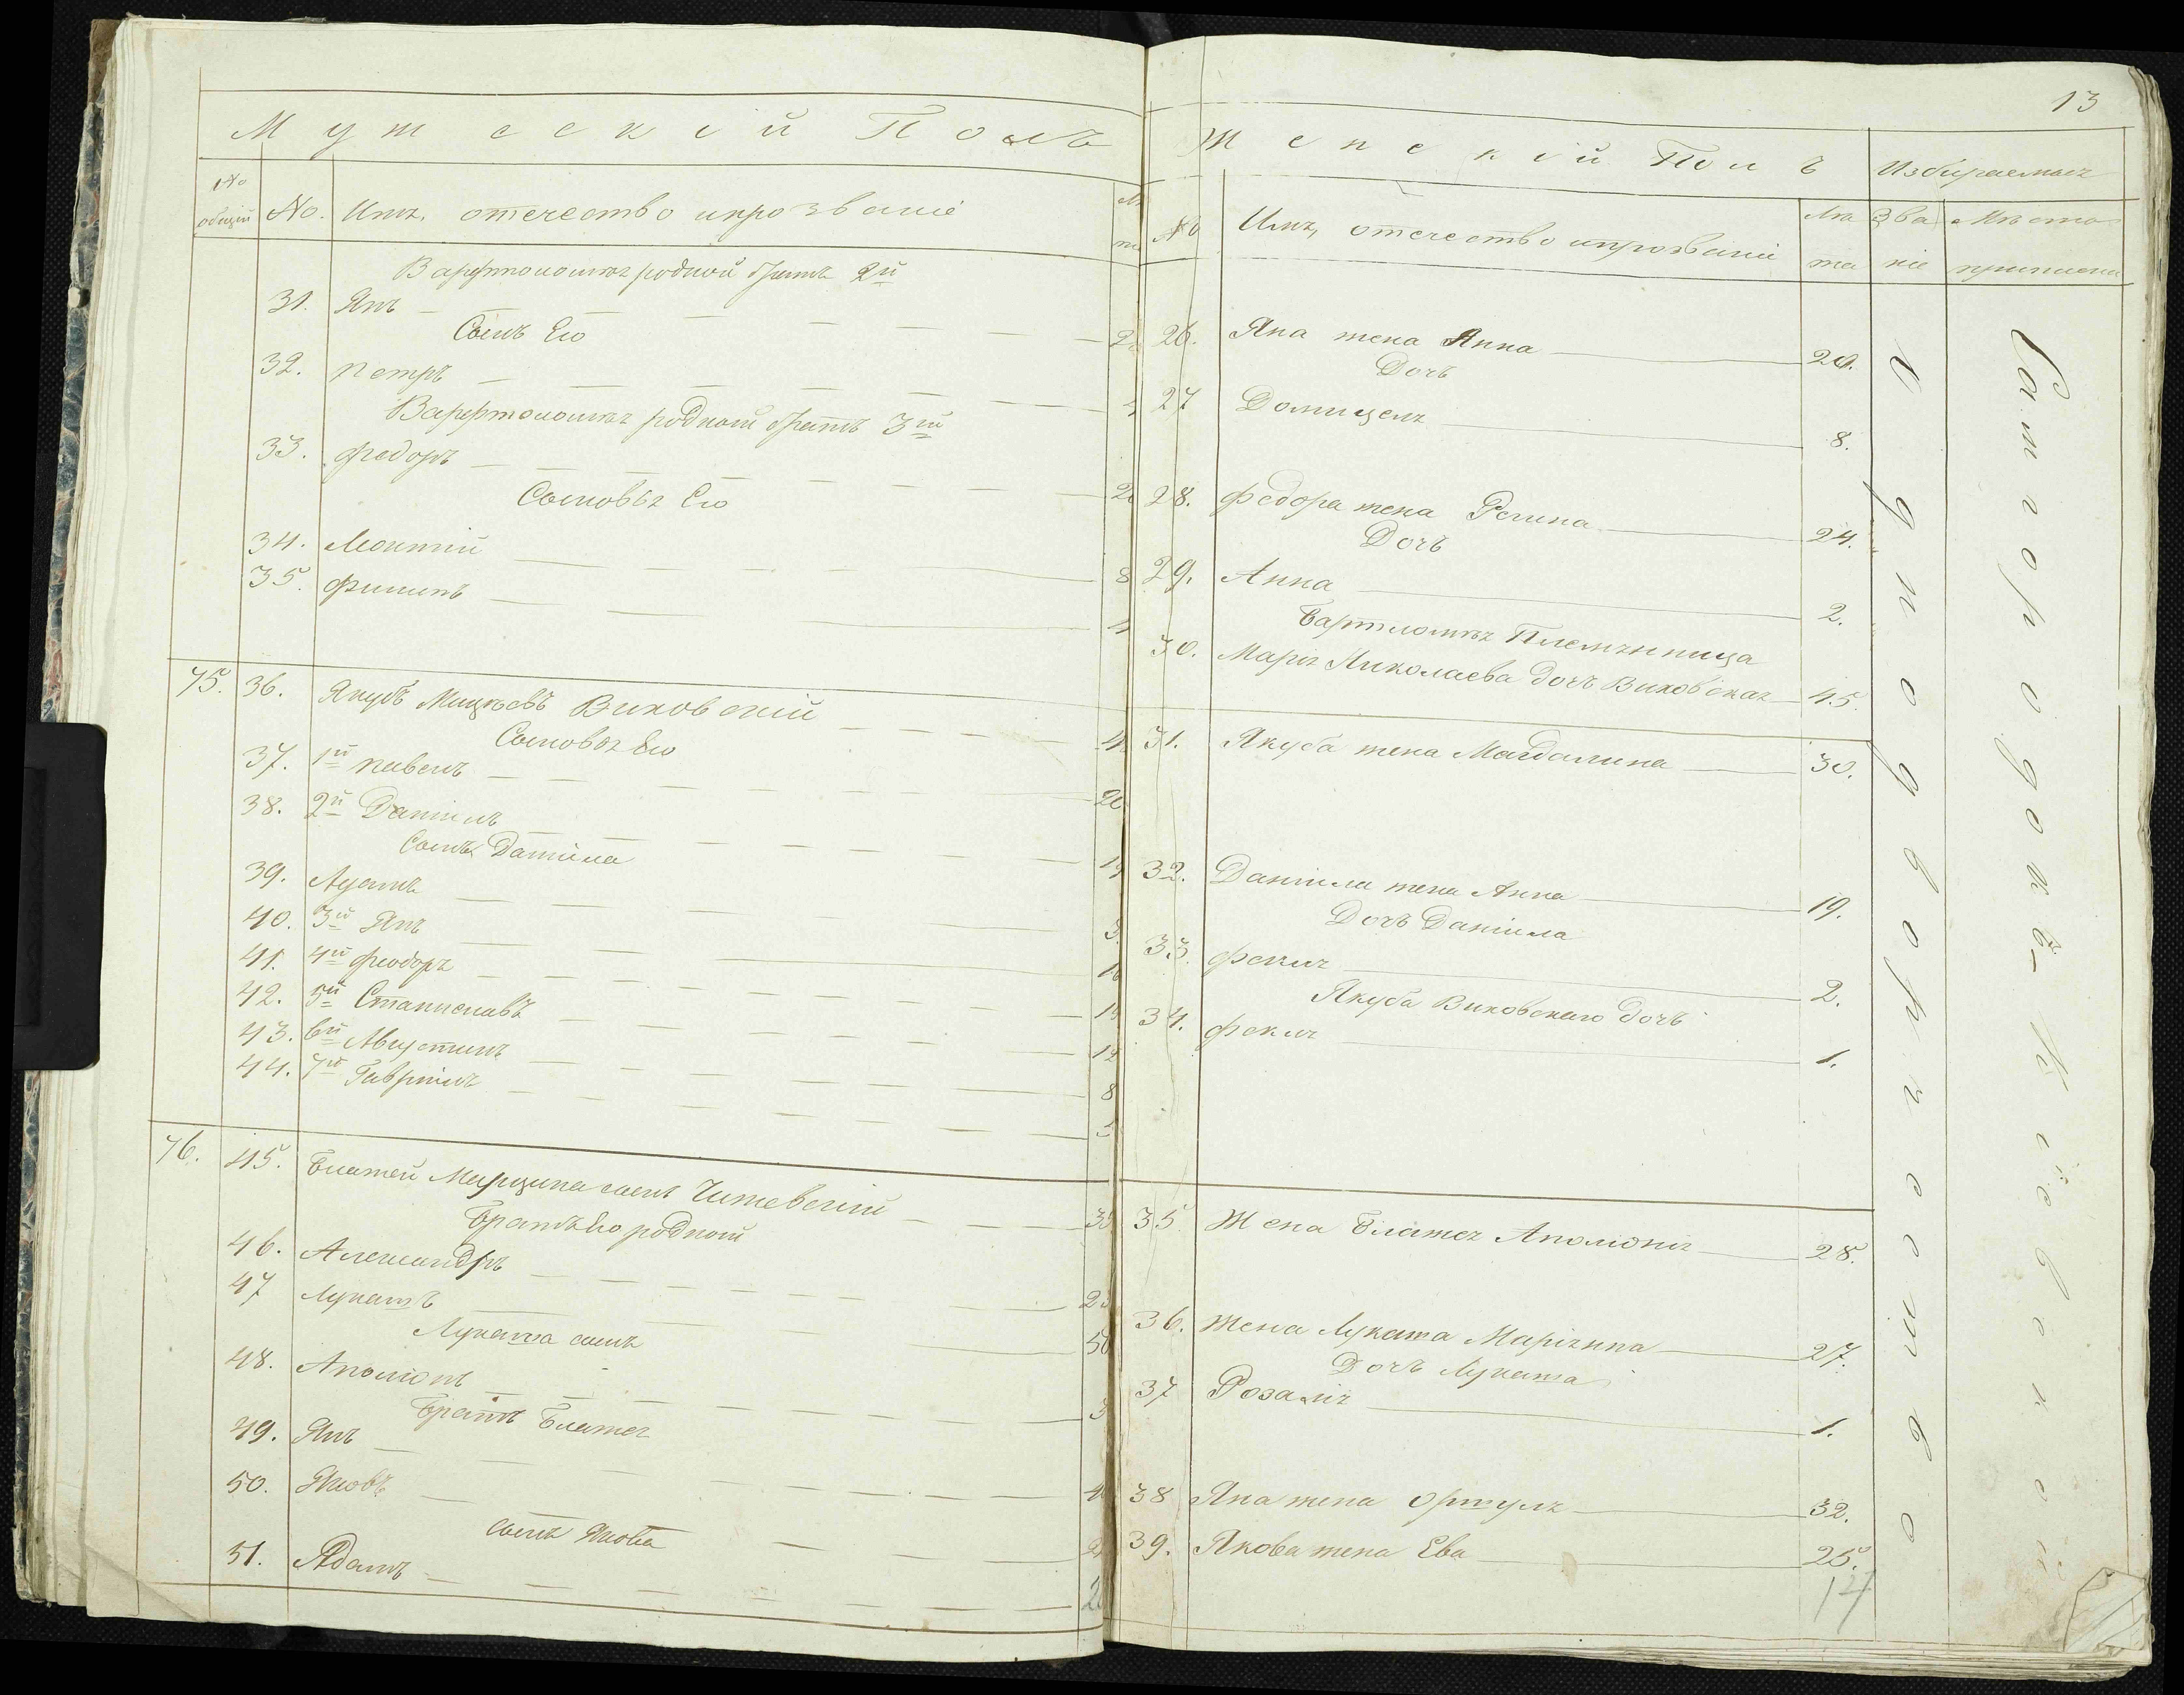 Мужескій Полъ
№ общій
№.
Имя, отечество и прозваніе
Лѣ та
Варфтоломѣя родной братъ 2й
31. Янъ
Сынъ Его
32. Петръ
Варфтоломѣя родной братъ 3й
33. Федоръ
Сыновья Его
34. Леонтій 8
35. Филипъ 4
75. 36. Якубъ Мацѣевъ Виховскій
Сыновья Его
37. 1й Павелъ 20
38. 2й Даніилъ 19
Сынъ Даніила
39. Адамъ 3.
40. 3й Янъ 16
41. 4й Феодоръ
42. 5й Станиславъ 12
43. 6й Августинъ 8
44. 7й Гавріилъ 5
76. 45. Блажей Марцина сынъ Чижевскій
Братъ Его родной
46. Александръ
47 Лукашъ
Лукаша сынъ
48. Аполіонъ 3
Братъ Блажея
49. Янъ
50. Яковъ
сынъ Якова
51. Адамъ
13
Женскій Полъ
Избираемыя
№
Имя, отечество и прозваніе
Лѣ та
Зва ніе
Мѣсто
26. Яна жена Анна 20.
Дочь
27 Домицеля 8.
28. Федора жена Регина 24.
Дочь
29. Анна 2.
Бартломѣя Племянница
30. Марія Николаева дочь Виховская 45.
31. Якуба жена Магдалина 30.
32. Даніила жена Анна 19.
Дочь Даніила
33. Фекля 2.
Якуба Виховскаго дочь
34. Фекля 1.
35 Жена Блажея Аполіонія 28.
36. Жена Лукаша Маріянна 27.
Дочь Лукаша
37 Розалія 1.
38 Яна жена Оршуля 32.
39. Якова жена Ева 25.
14
Однодворческое
Самгородокъ Кіевской